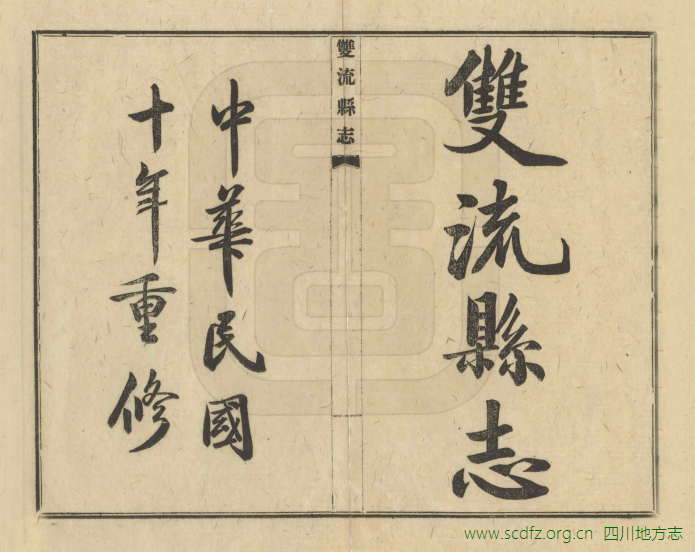 雙流縣志
雙流縣志
中華民國
十年重修
www.scdfz.org.cn 四川地方志